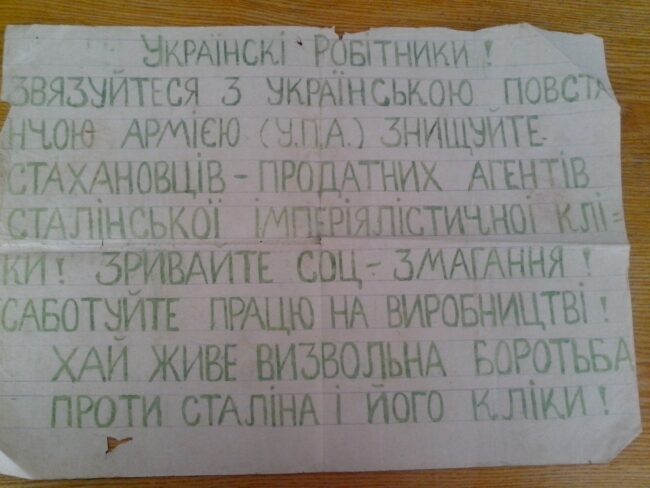 Українскі Робітники!
Звязуйтеся з Українською Повста
нчою Армією (У.П.А.) знищуйте
стахановців - продатних агентів
сталінської імперіялістичної клі=
ки! Зривайте соц-змагання!
Саботуйте працю на виробництві!
Хай живе визвольна боротьба
проти Сталіна і його кліки!